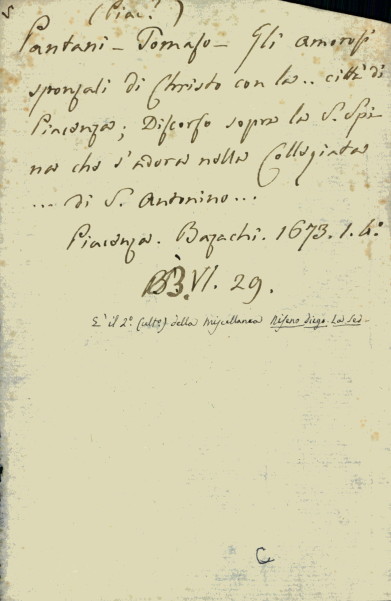 (Piac.)
Pantani - Tomaso - Gli amorosi
sponsali di Christo con la .. città di
Piacenza; Discorso sopra la S. Spi
na che s'adora nella Collegiata
... di S. Antonino...
Piacenza. Bazachi. 1673. 1. 4°
BB. VI. 29.
E' il 2° (ulto) della miscellanea Diego La
C